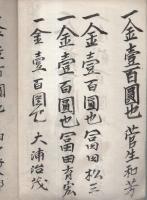 一金壹百圓也 菅生和芳
一金壹百圓也 冨田松三
一金壹百圓也 冨田有宏
一金壹百圓也 大浦治茂